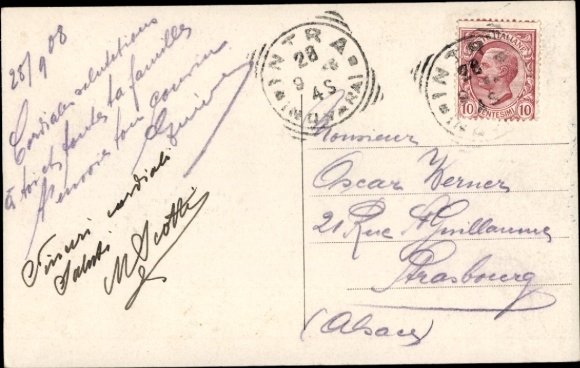 28/9 08
Cordiales salutations
à toi et toutes ta familles
ton cousin
Sinceri cordiali
Saluti
M Scotti
INTRA
28
9
4S
POSTE ITALIANE
10 CENTESIMI 10
INTRA
28
4S
Monsieur
Oscar Werner
21 Rue St Guillaume
Strasbourg
(Alsace)